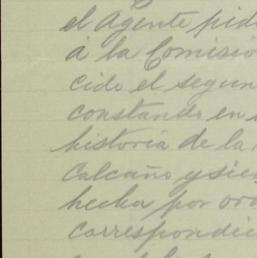 el Agente pid
á la Comisió
cido el segun
constando en
historia de la
Calcaño y sien
hecha por ord
correspondie